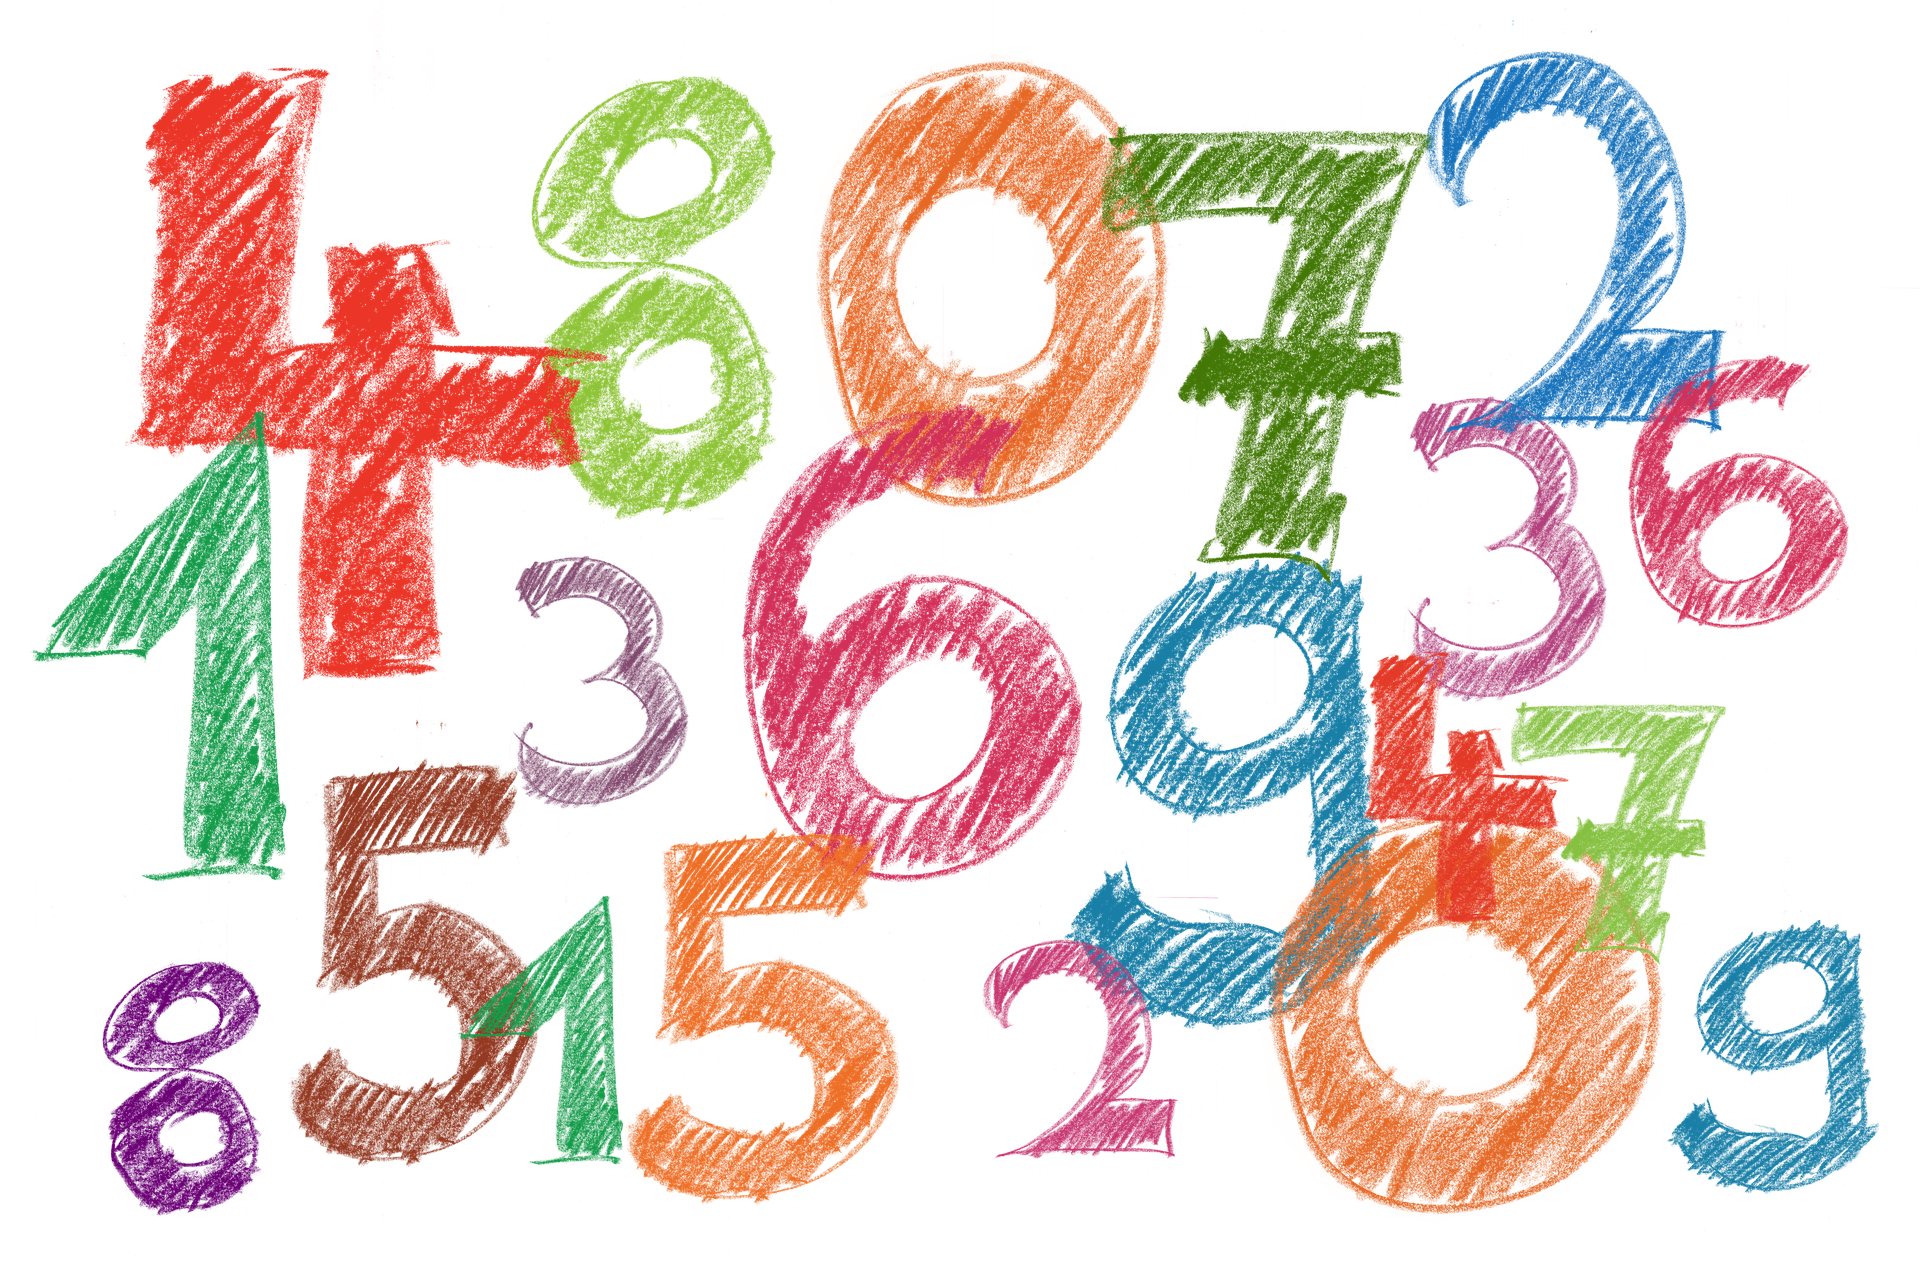 4 8 0 7 2
1 3 6 9 3 6
5 4 7
8 1 5 2 0 9